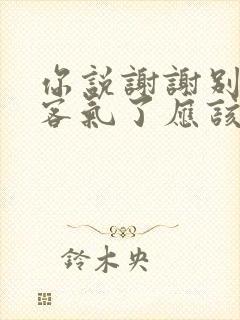 你説謝謝别
客氣了應該
鈴木央